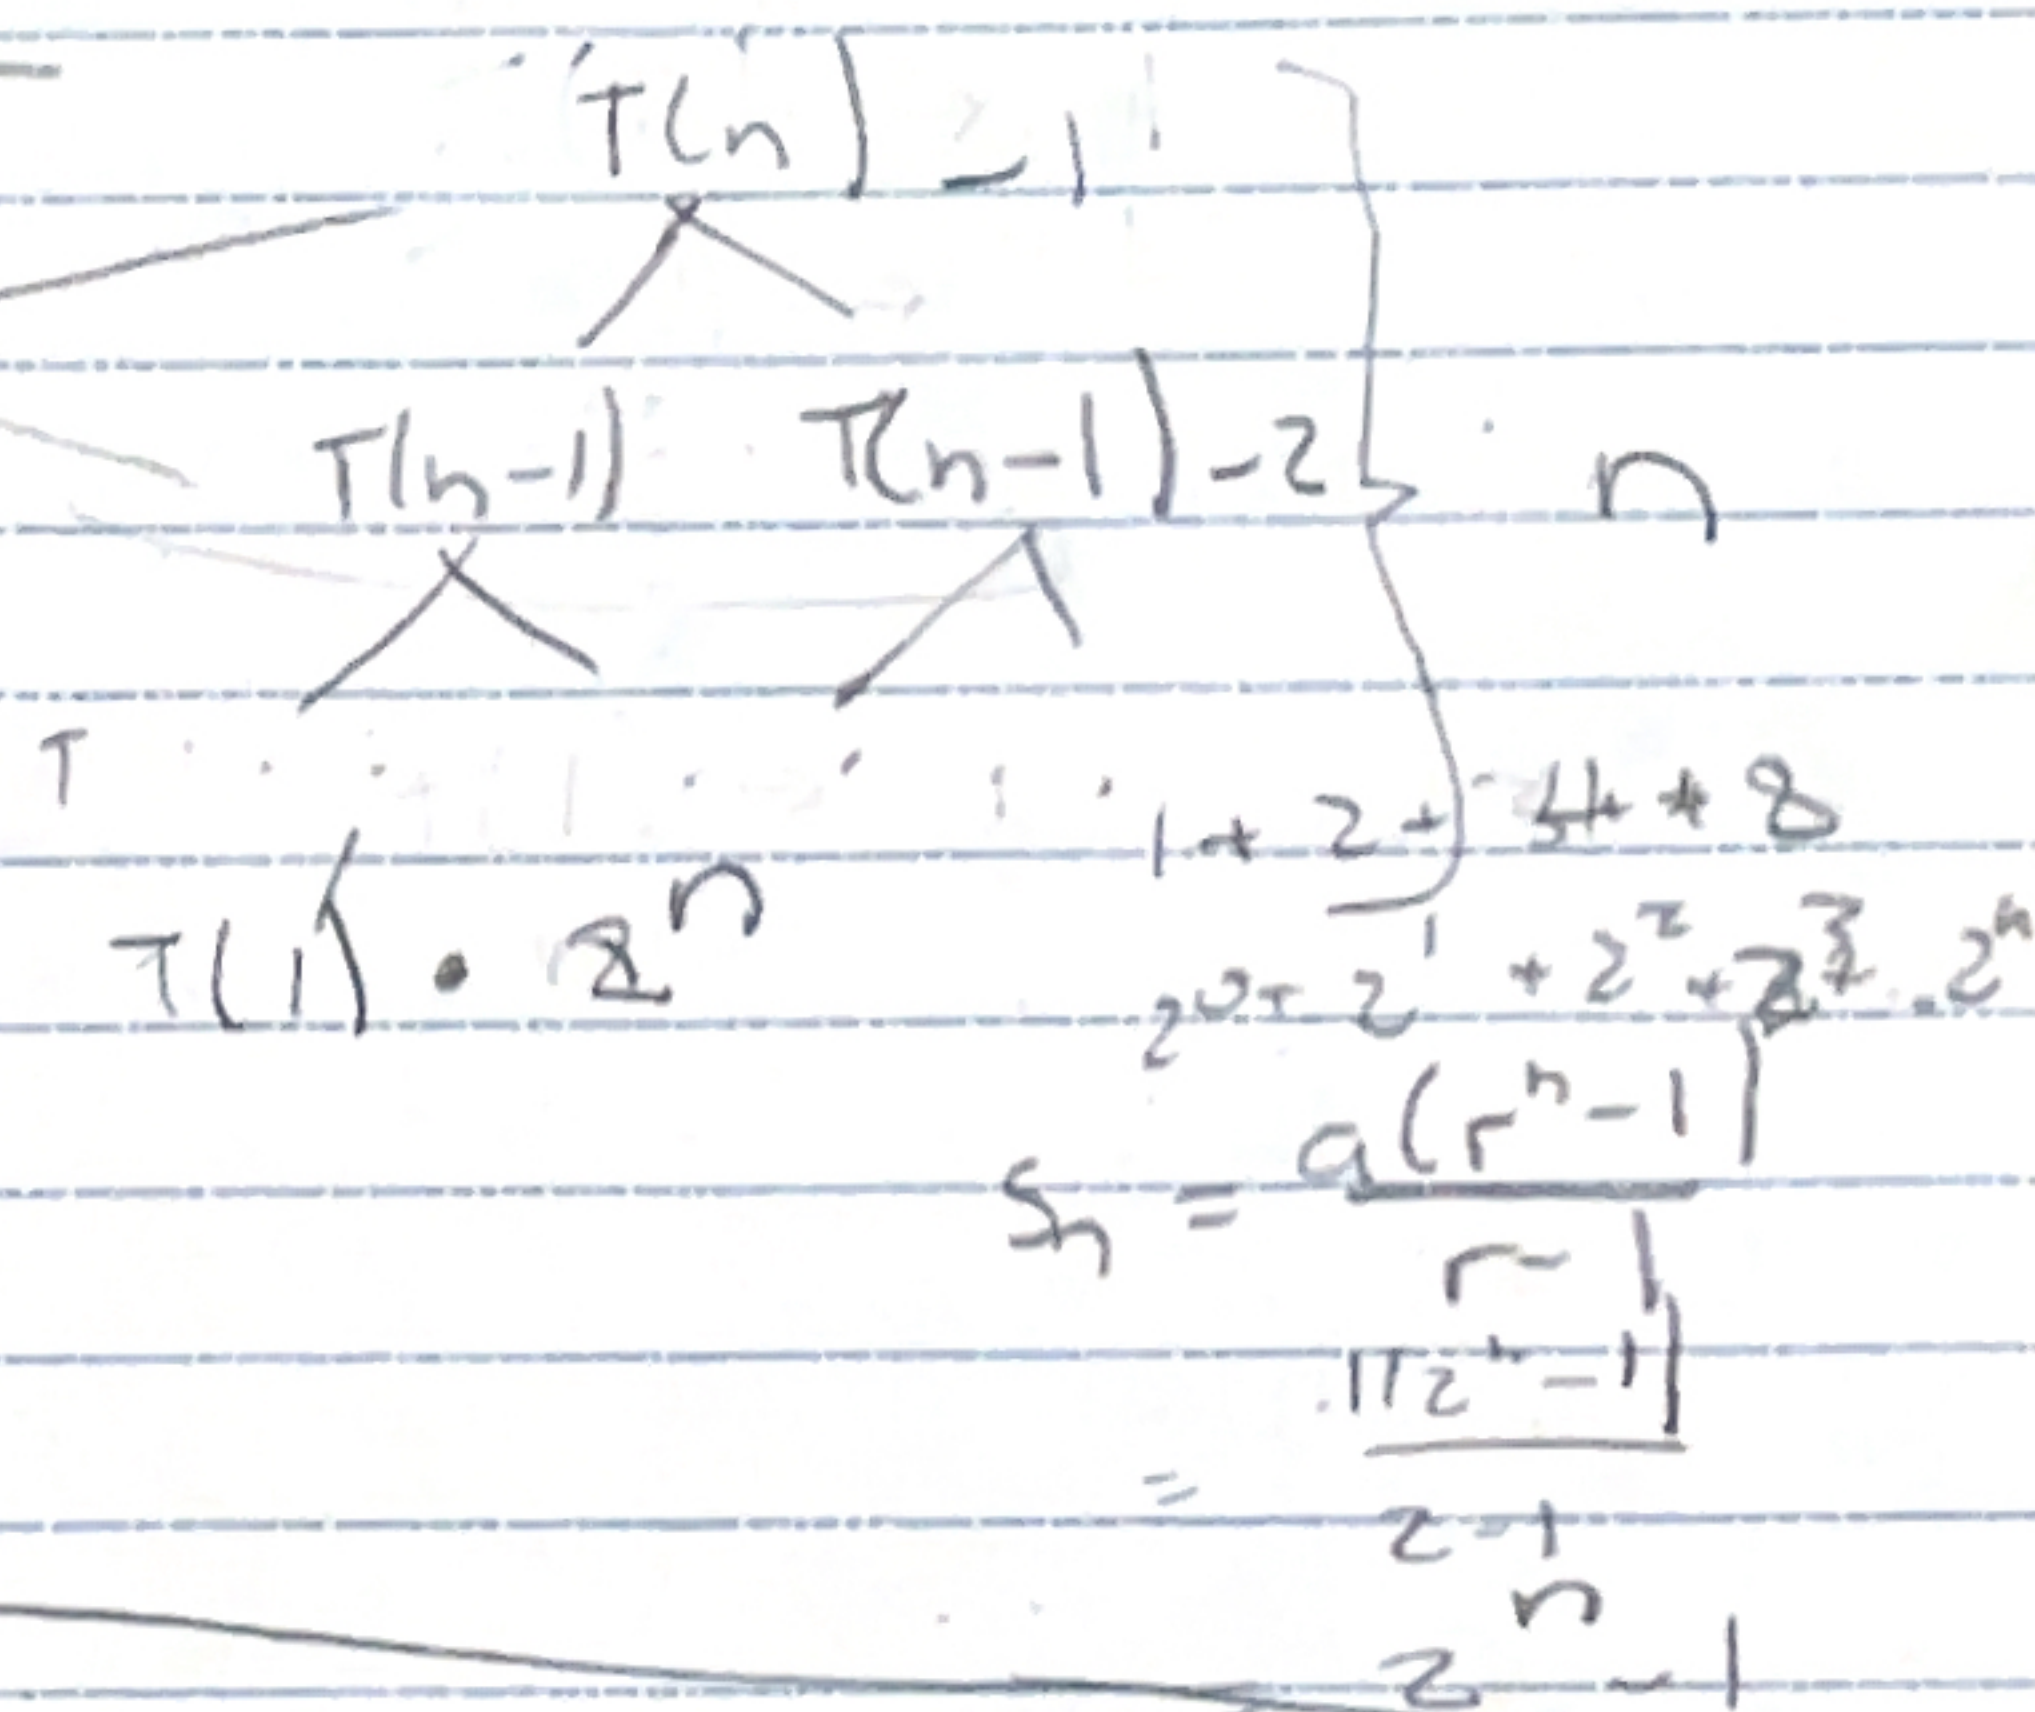 T(n) - 1
T(n-1) T(n-1) - 2
n
T
1 + 2 + 4 + 8
T(1) • 2^n
2^0 + 2^1 + 2^2 + 2^3 .. 2^n
Sn = a(r^n - 1) / r - 1
= 1(2^n - 1) / 2 - 1
2^n - 1